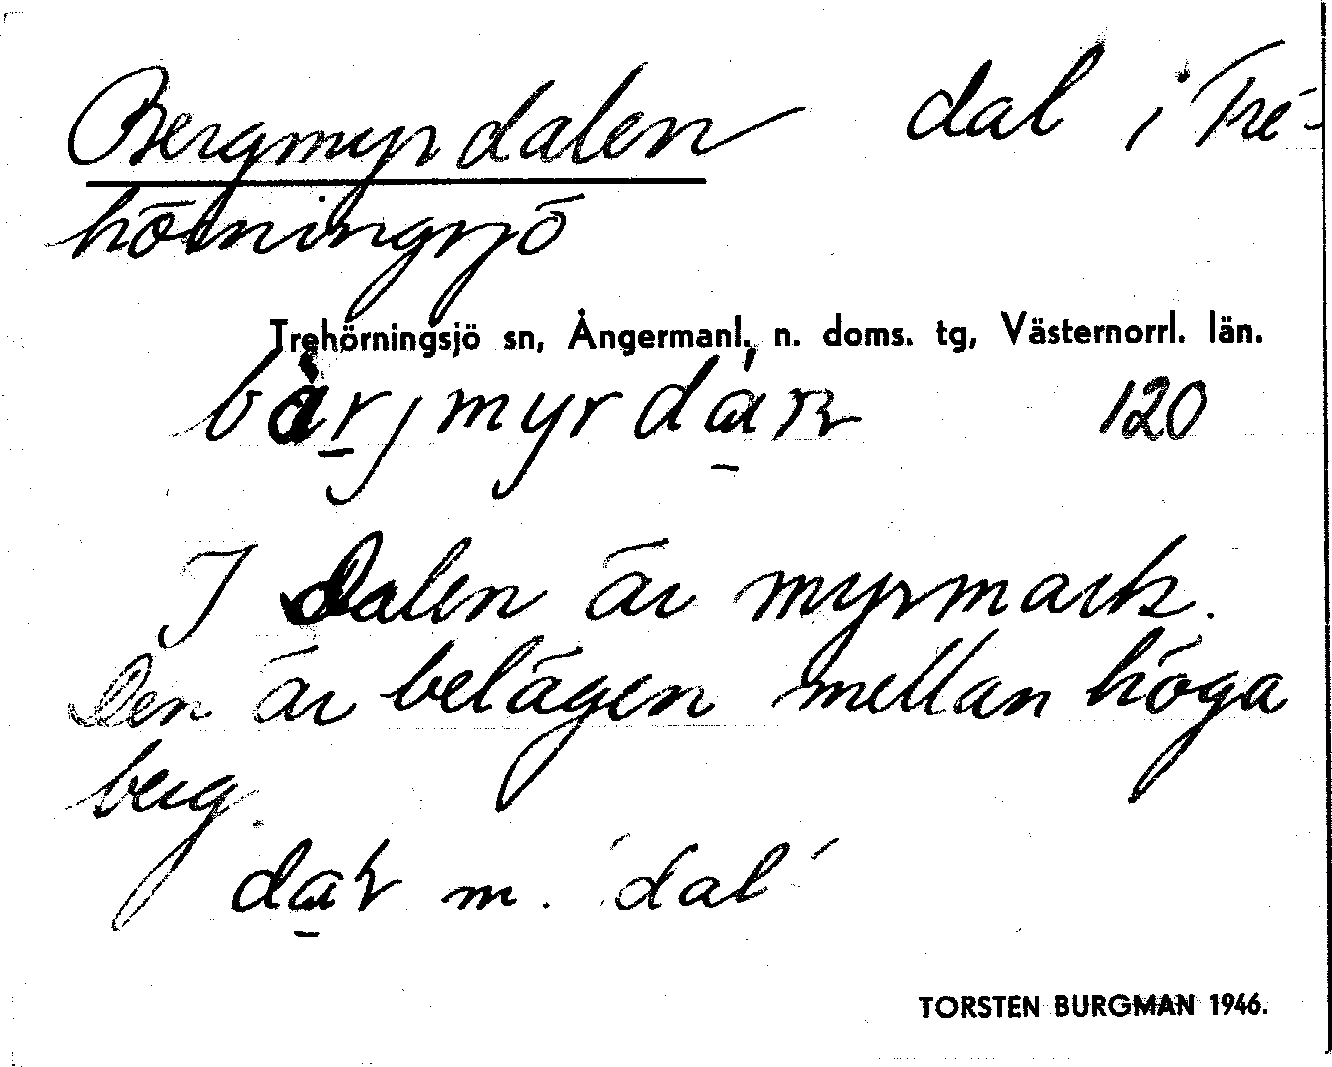 Bergmyrdalen dal i Tre-
hörningsjö
Trehörningsjö sn, Ångermanl., n. doms. tg, Västernorrl. län.
120
I Dalen är myrmark.
Den är belägen mellan höga
berg.
m. 'dal'
TORSTEN BURGMAN 1946.